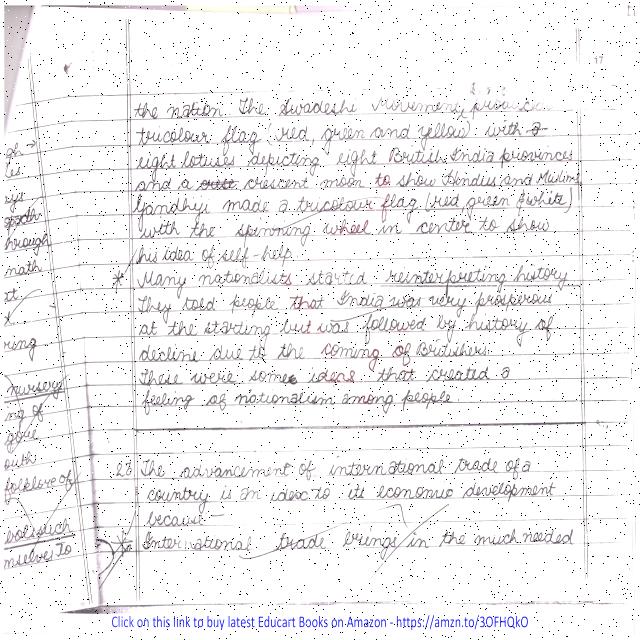 17
the nation. The Swadeshi Movement,
tricolour flag (red, green and yellow) with
eight lotuses depicting eight British India provinces
and a crescent moon to show Hindus and Muslims
Gandhiji made a tricolour flag (red green & white)
with the spinning wheel in center to show
his idea of self-help.
* Many nationalists started reinterpreting history
They told people that India was very prosperous
at the starting but was followed by history of
decline due to the coming of Britishers.
These were some ideas that created a
feeling of nationalism among people
math
it
ring
nursery
ng of
folklore of
mselves To
23 The advancement of international trade of a
country is an index to its economic development
because -
International trade brings in the much needed
Click on this link to buy latest Educart Books on Amazon - https://amzn.to/3OFHQkO